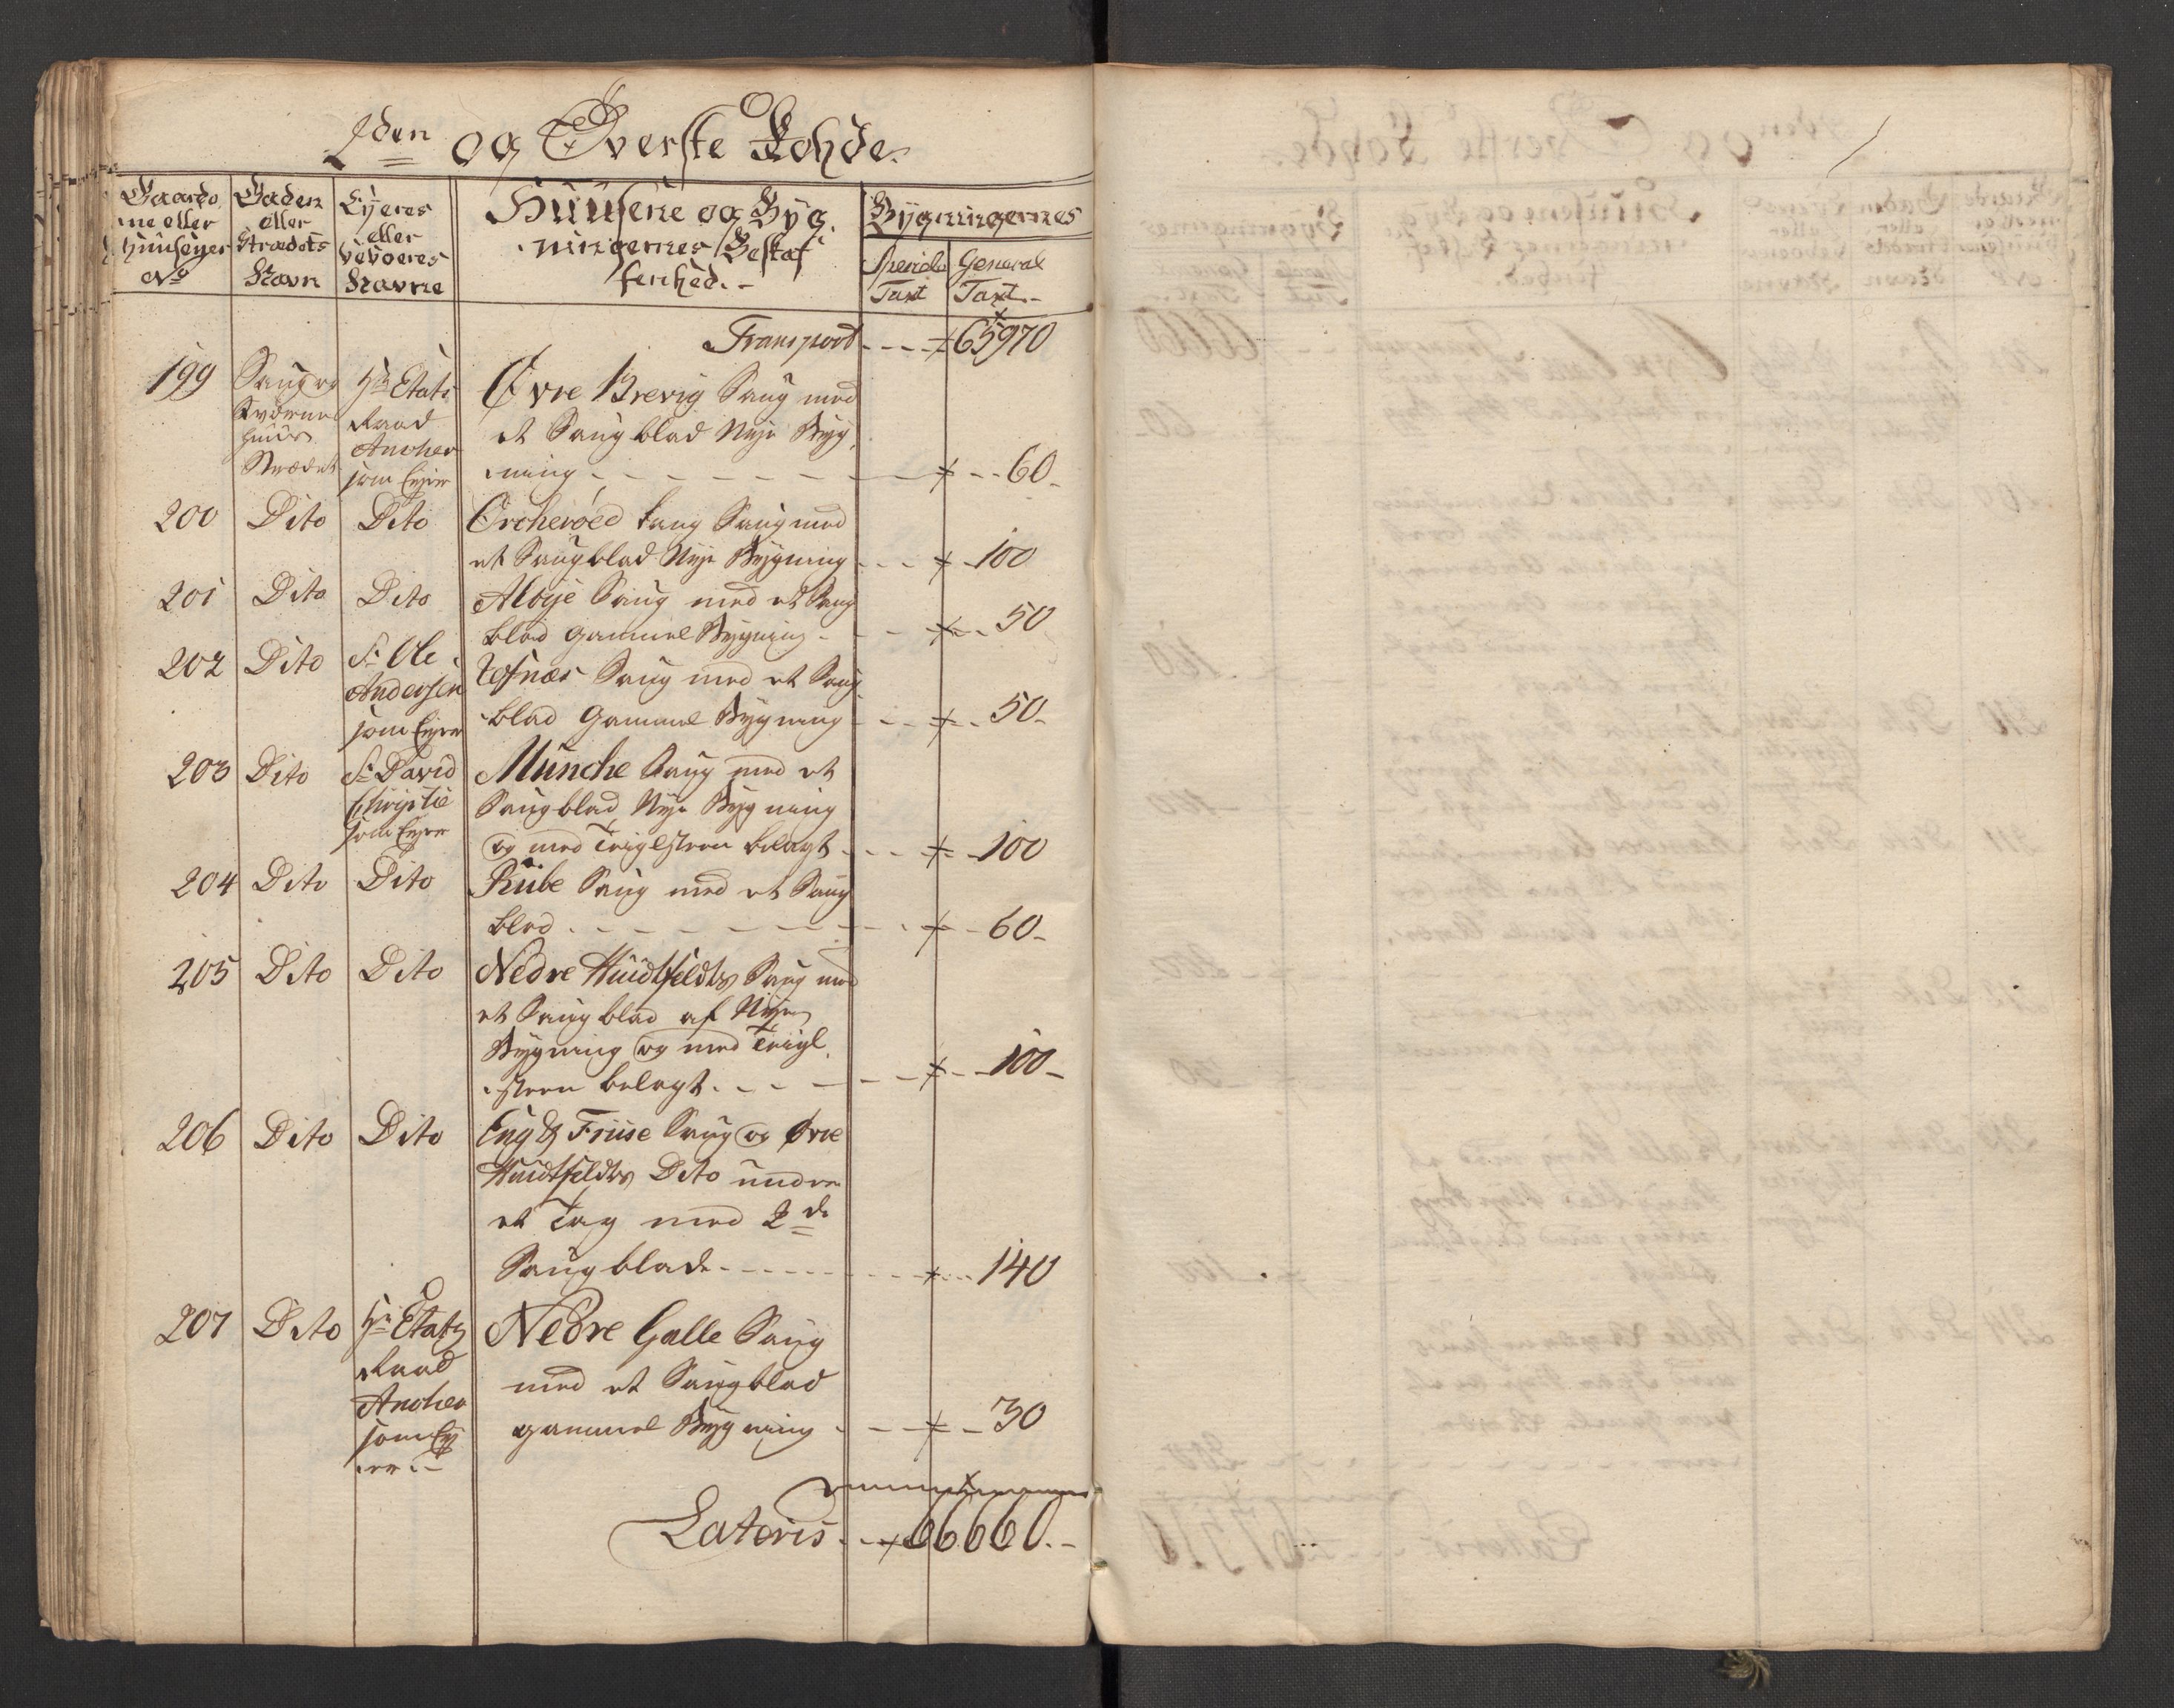 2den og Øverste Rohde.
Gaarde
ne eller
Huusenes
No
Gaden
eller
Strædets
Navn
Eyeres
eller
Beboeres
Navne
Huusene og Byg
ningernes Beskaf
fenhed.-
Bygningernes
Speciale
Taxt
General
Taxt.-
Transport - - - 65970
199 Saug og
Kværne
Huus
Strædet
Hr Etats
Raad
Ancher
som Eyer
Øvre Brevig Saug med
et Saugblad Nye Byg
ning - - - - - - - 60.
200 Dito Dito
Saug med
et Saugblad Nye Bygning - - - 100
201 Dito Dito
Saug med et Saug
blad Gammel Bygning - - - 50
202 Dito Sr Ole
Andersen
som Eyer
Tofnæs Saug med et Saug
blad Gammel Bygning - - - 50-
203 Dito Sr David
Christie
som Eyer
Munche Saug med et
Saugblad Nye Bygning
og med Teiglsteen belagt - - - 100
204 Dito Dito
Rübe Saug med et Saug
blad - - - - - - - 60-
205 Dito Dito
Nedre Huidtfeldts Saug med
et Saugblad af Nye
Bygning og med Teigl
steen belagt - - - - - 100-
206 Dito Dito
Friise Saug og Øvre
Huidtfeldts Dito under
et Tag med 2de
Saugblade - - - - - - 140
207 Dito Hr Etats
Raad
Ancher
som Ey
er.-
Nedre Galle Saug
med et Saugblad
gammel Bygning - - - 30
Lateris - - 66660.-